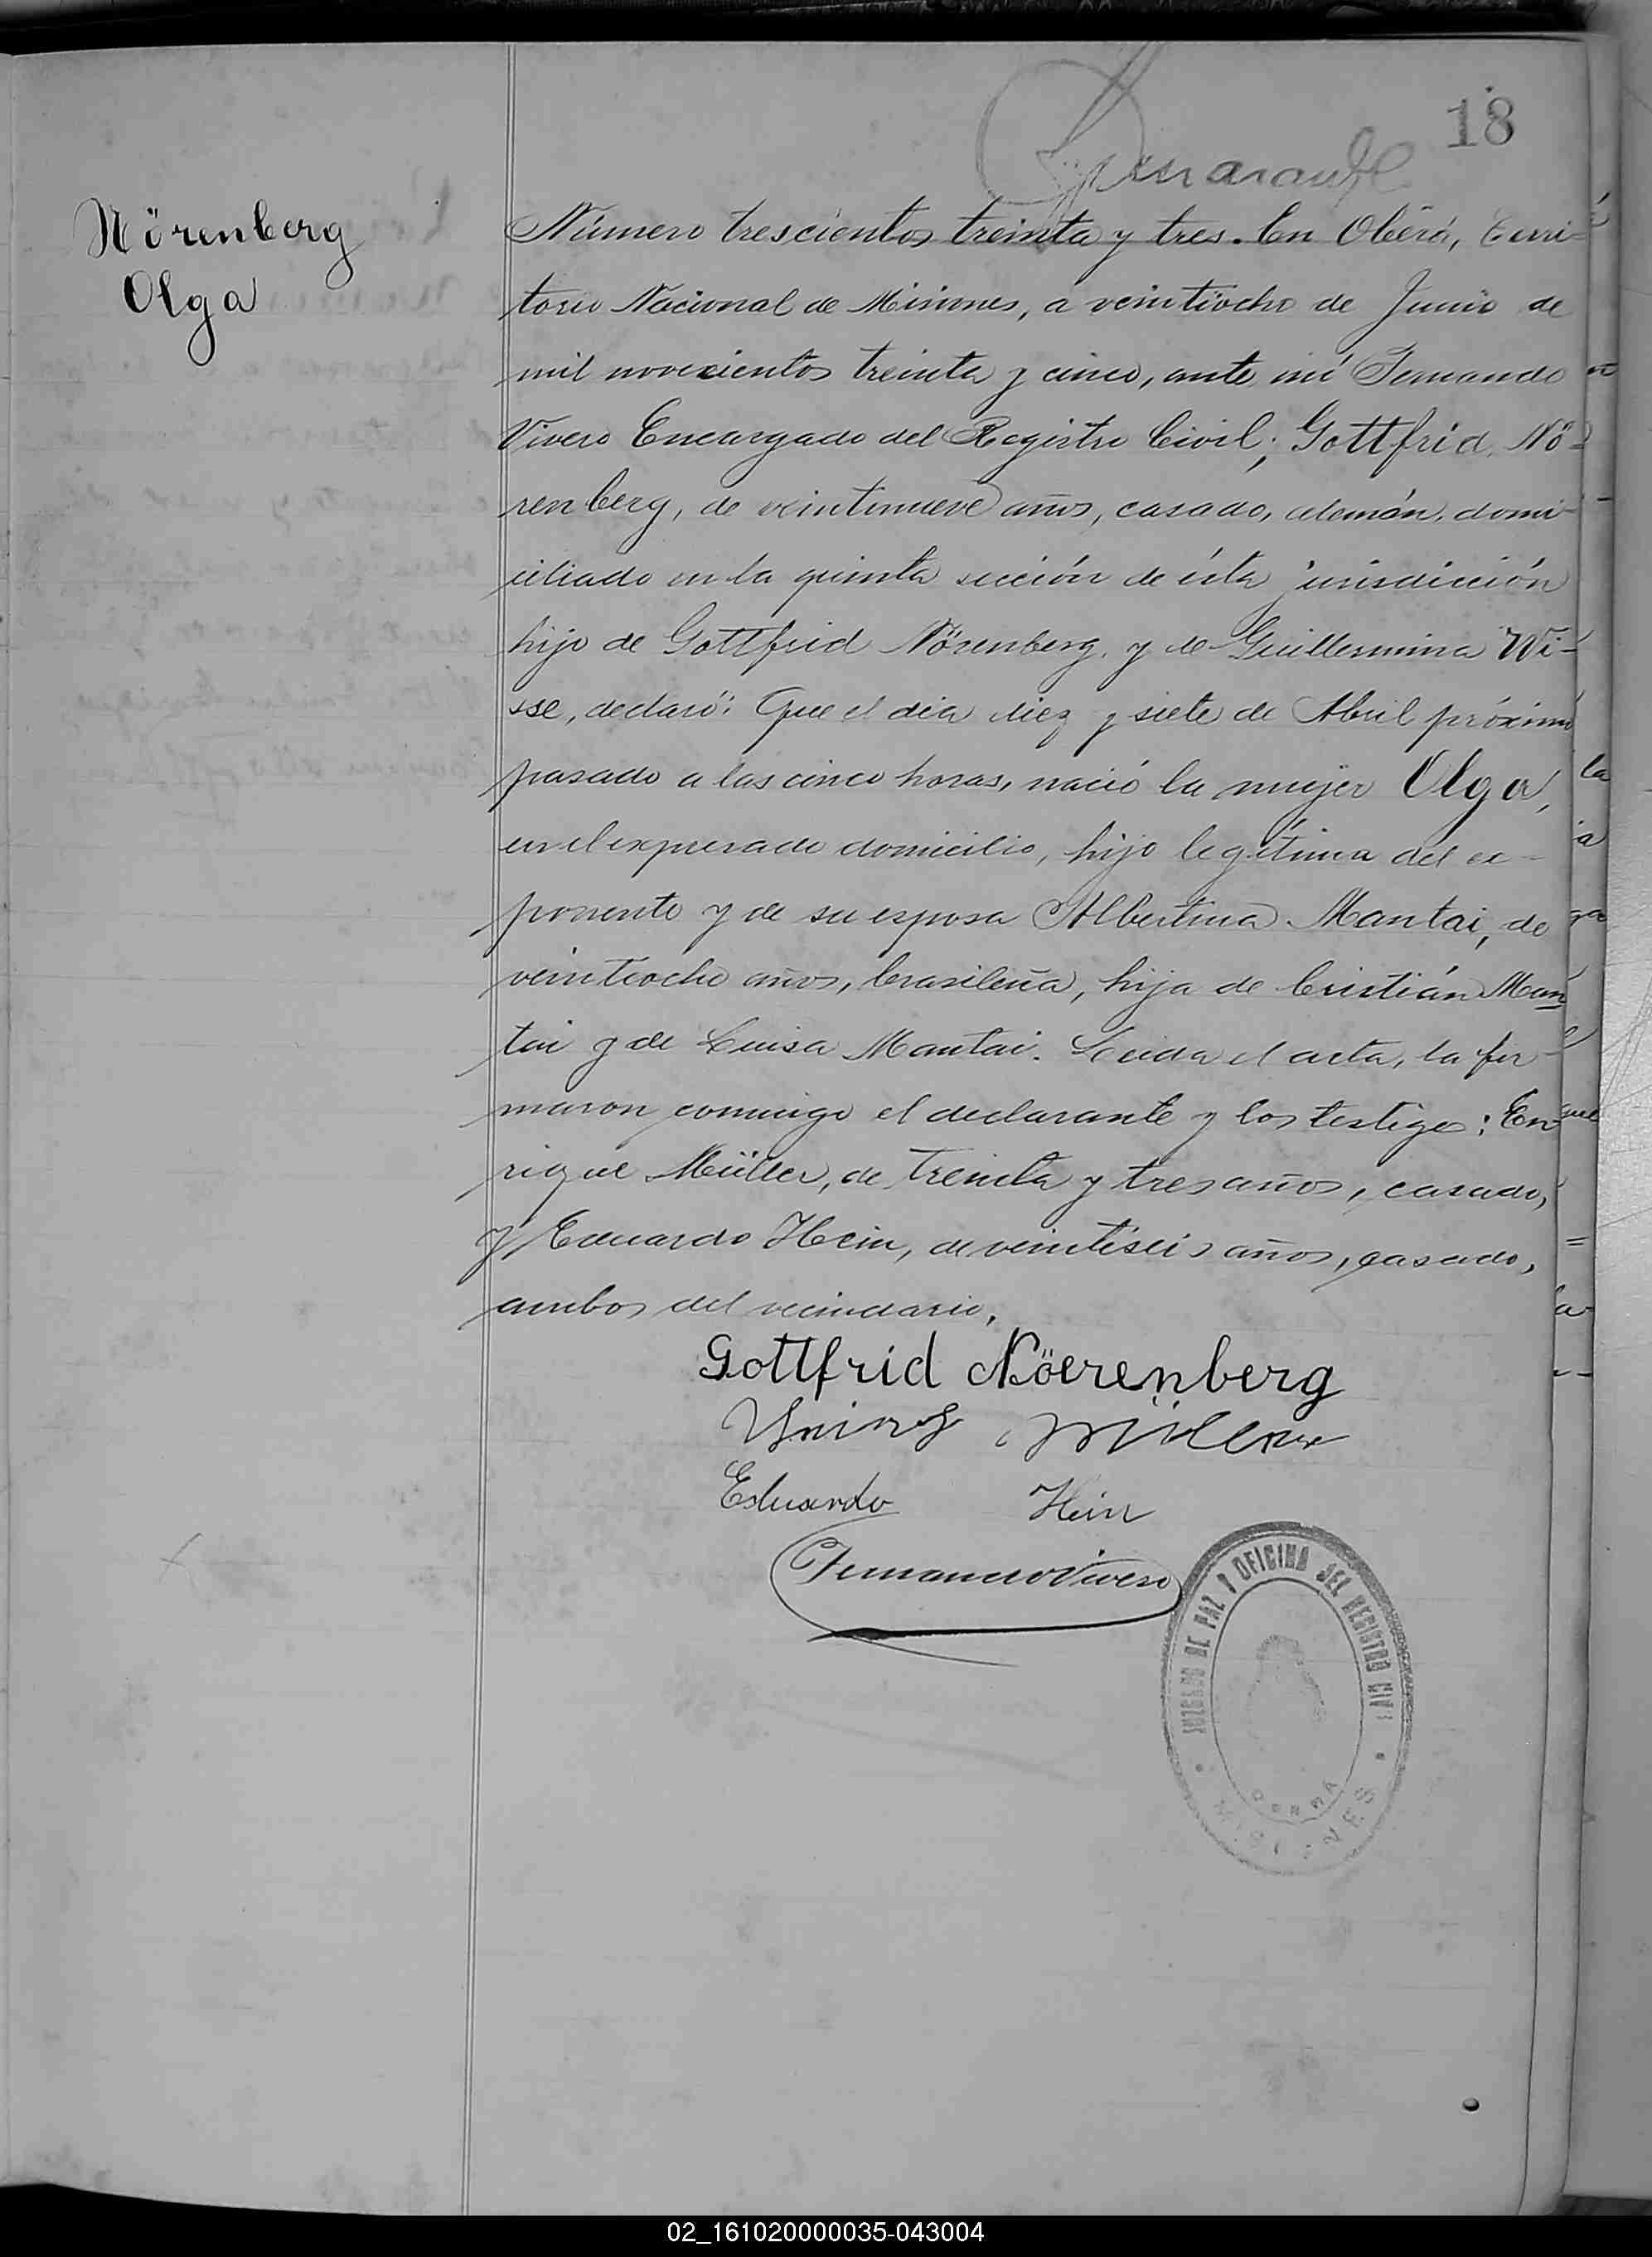 18
Nörenberg
Olga
Número trescientos treinta y tres. En Oberá, Terri-
torio Nacional de Misiones, a veintiocho de Junio de
mil novecientos treinta y cinco, ante mí Fernando
Vivero Encargado del Registro Civil; Gottfrid Nö-
renberg, de veintinueve años, casado, alemán, domi-
ciliado en la quinta sección de ésta jurisdicción
hijo de Gottfrid Nörenberg y de Guillermina Wi-
sse, declaró: Que el día diez y siete de Abril próximo
pasado a las cinco horas, nació la mujer Olga,
en el expresado domicilio, hijo legítima del ex-
ponente y de su esposa Albertina Mantai, de
veintiocho años, brasileña, hija de Cristián Man
tai y de Luisa Mantai. Leida el acta, la fir-
maron conmigo el declarante y los testigos: En
rique Müller, de treinta y tres años, casado,
y Eduardo Hein, de veintiseis años, casado,
ambos del vecindario.
Gottfrid Nöerenberg
Müller
Eduardo Hein
Fernando Vivero
JUZGADO DE PAZ Y OFICINA DEL REGISTRO CIVIL
MISIONES
02_161020000035-043004